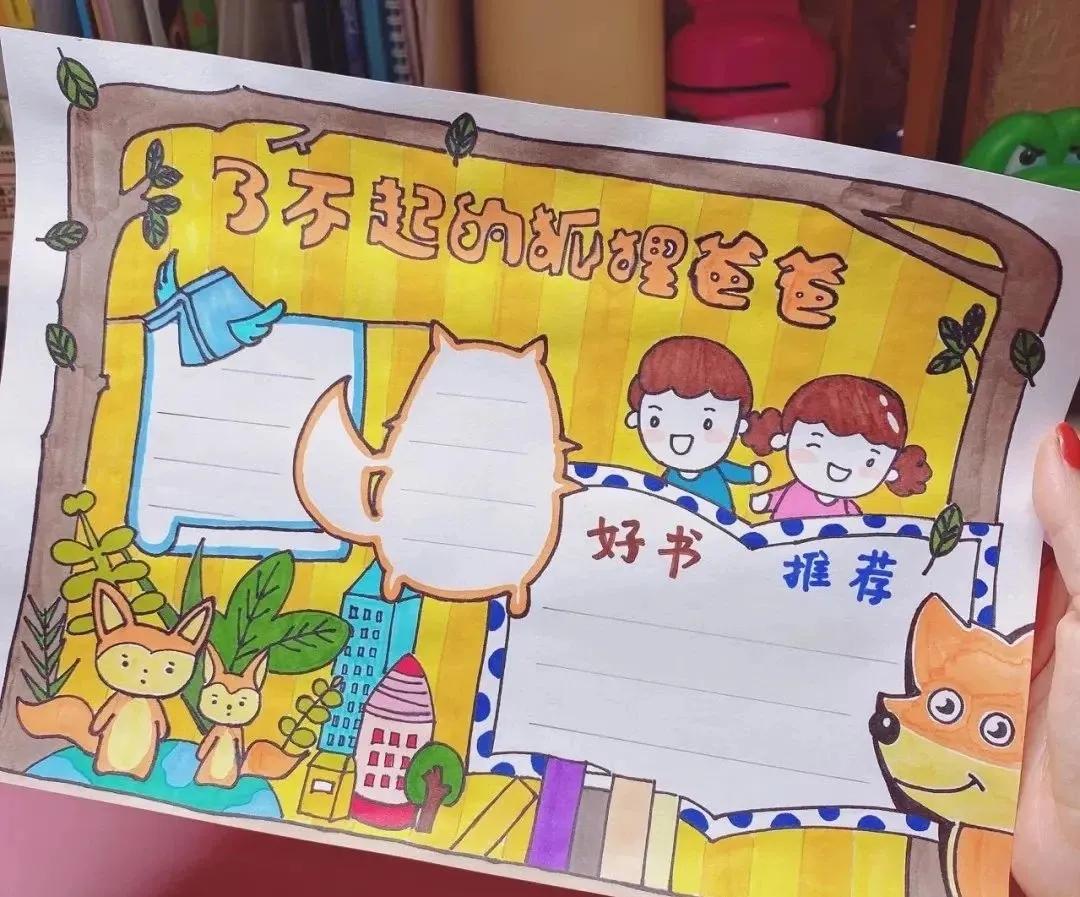 了不起的狐狸爸爸
好书
推荐